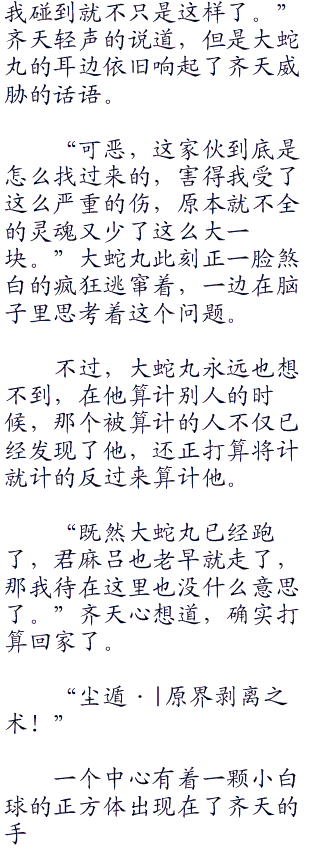 我碰到就不只是这样了。”
齐天轻声的说道，但是大蛇
丸的耳边依旧响起了齐天威
胁的话语。
“可恶，这家伙到底是
怎么找过来的，害得我受了
这么严重的伤，原本就不全
的灵魂又少了这么大一
块。”大蛇丸此刻正一脸煞
白的疯狂逃窜着，一边在脑
子里思考着这个问题。
不过，大蛇丸永远也想
不到，在他算计别人的时
候，那个被算计的人不仅已
经发现了他，还正打算将计
就计的反过来算计他。
“既然大蛇丸已经跑
了，君麻吕也老早就走了，
那我待在这里也没什么意思
了。”齐天心想道，确实打
算回家了。
“尘遁·|原界剥离之
术！”
一个中心有着一颗小白
球的正方体出现在了齐天的
手